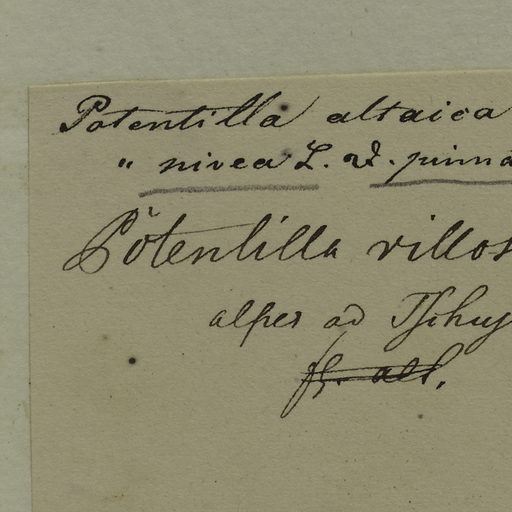 Potentilla altaica
" nivea L. V. pinna
Potentilla villos
alpes ad Tschuj
fl. alt.